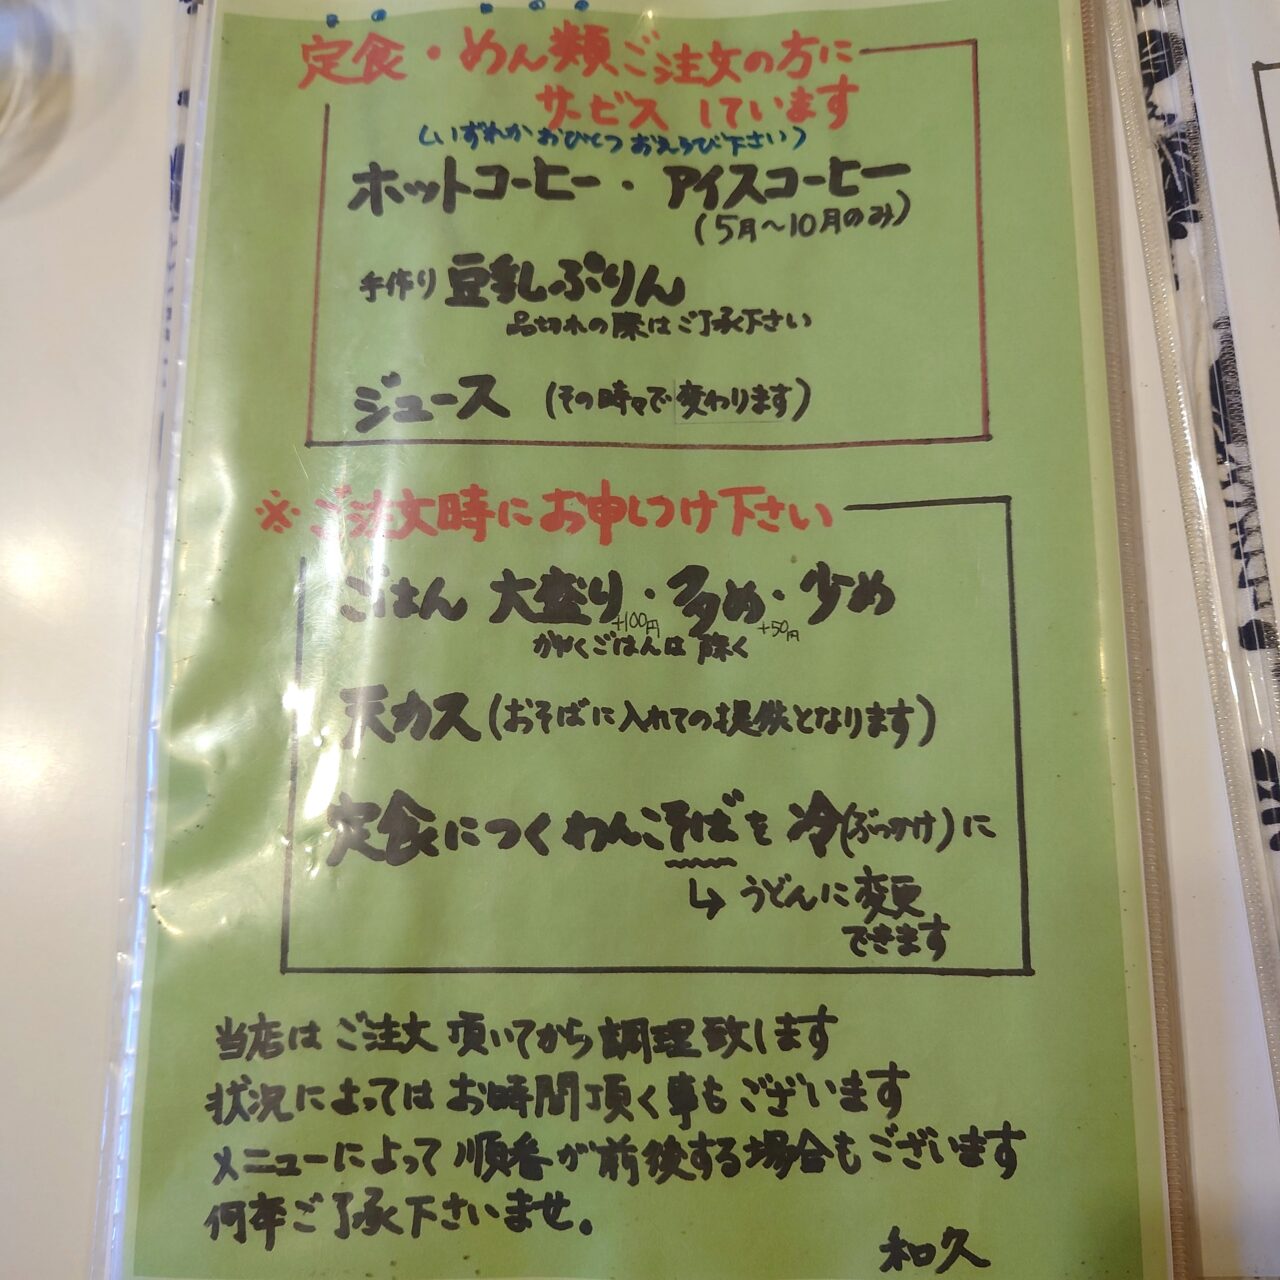 定食・めん類ご注文の方に
サービスしています
(いずれかおひとつおえらび下さい)
ホットコーヒー・アイスコーヒー
(5月〜10月のみ)
手作り豆乳しぷりん
品切れの際はご了承下さい
ジュース (その時々で変わります)
※ご注文時にお申しつけ下さい
ごはん 大盛り・多め・少め
+100円 +50円
かやくごはんは除く
天カス(おそばに入れての提供となります)
定食につくわんこそばを冷(ぶっかけ)に
↳うどんに変更
できます
当店はご注文頂いてから調理致します
状況によってはお時間頂く事もございます
メニューによって順番が前後する場合もございます
何卒ご了承下さいませ。
和久